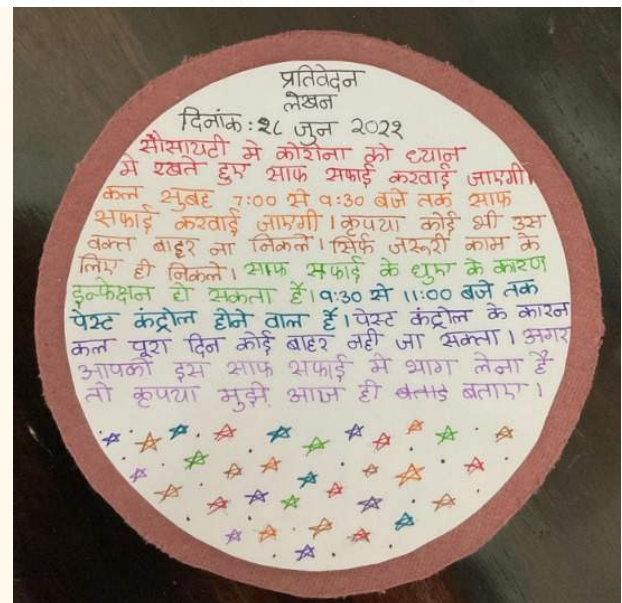 प्रतिवेदन
लेखन
दिनांक : २८ जुन २०२१
सौसायटी मे कोरोना को ध्यान
मे रखते हुए साफ सफाई करवाई जाएगी।
कल सुबह 7:00 से 9:30 बजे तक साफ
सफाई करवाई जाएगी। कृपया कोई भी उस
वक्त बाहर ना निकले। सिर्फ जरूरी काम के
लिए ही निकले। साफ सफाई के धुए के कारण
इन्फेक्षन हो सकता है। 9:30 से 11:00 बजे तक
पेस्ट कंट्रोल होने वाल है। पेस्ट कंट्रोल के कारन
कल पूरा दिन कोई बाहर नही जा सकता। अगर
आपको इस साफ सफाई मे भाग लेना है
तो कृपया मुझे आज ही बताए।